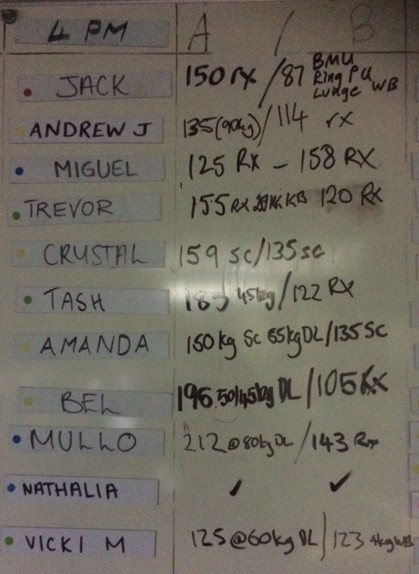 4 PM A / B
JACK 150 rx / 87 BMU Ring PU Lunge WB
ANDREW J 135(90kg)/114 rx
MIGUEL 125 RX - 158 RX
TREVOR 155 RX KB 120 RX
CRYSTAL 159 SC/135 sc
TASH 183 45kg/122 RX
AMANDA 150 kg Sc 65kg DL/135 SC
BEL 196 50/45kg DL/105 RX
MULLO 212 @80kg DL / 143 Rx
NATHALIA ✓ ✓
VICKI M 125 @60kg DL/123 4kg WB